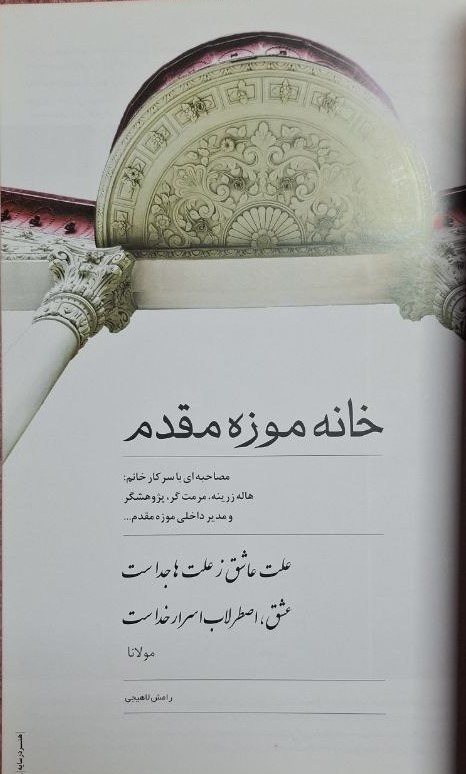 خانه موزه مقدم
مصاحبه ای با سرکار خانم:
هاله زرینه، مرمت گر، پژوهشگر
و مدیر داخلی موزه مقدم...
علت عاشق ز علت ها جداست
عشق، اصطرلاب اسرار خداست
مولانا
رامش لاهیجی
هنر در سایه